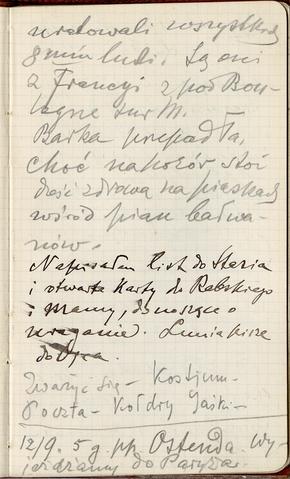 uratowali wszystkich
8miu ludzi. Są oni
z Francyi z pod Bou-
logne sur M. –
Barka przepadła,
choć na pozór stoi
dość zdrową na piaskach
wśród pian bałwa-
nów. –
Napisałem list do Stasia
i otwarte karty do Rabskiego
i Mamy, donosząc o
uraganie. Lunia pisze
do Ojca.
Zważyć się – Kostjum –
Poczta – Kołdry Jaśki –
12/9. 5 g. pp. Ostenda. Wy-
jeżdżamy do Paryża.